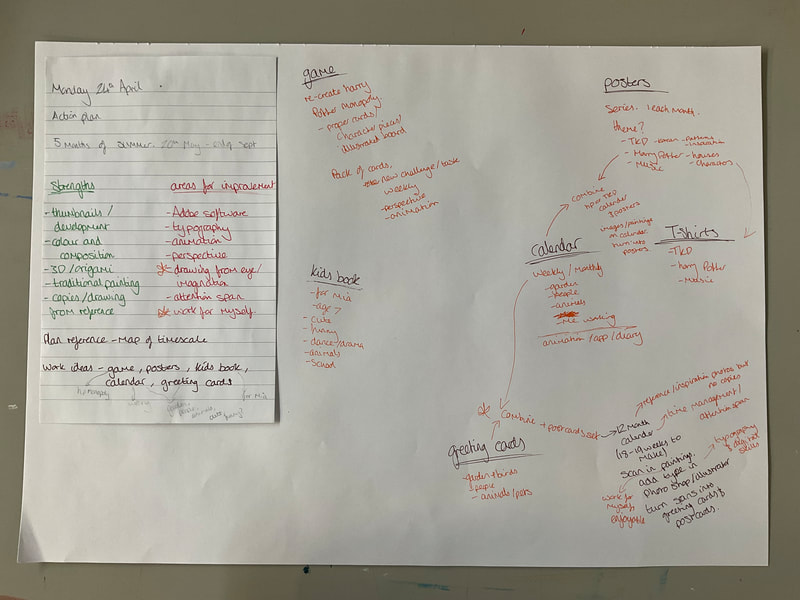 Monday 24th April
Action plan
5 Months of Summer. 20th May - end of Sept
Strengths
- thumbnails /
development
- colour and
composition
- 3D / origami
- traditional painting
- copies / drawing
from reference
areas for improvement
- Adobe software
- typography
- animation
- perspective
* drawing from eye/
imagination
- attention span
* work for myself.
Plan reference - Map of timescale
Work ideas - game, posters, kids book,
calendar, greeting cards
hp monopoly
for Mia
game
re-create harry
Potter monopoly
- proper cards/
character pieces/
illustrated board
Pack of cards,
new challenge/task
weekly
- perspective
- animation
kids book
- for Mia
- age 7
- cute
- funny
- dance/drama
- animals
- School
posters
Series. 1 each month.
theme?
- TKD - - patterns
- inspiration
- Harry Potter - houses
- Characters
- Music
combine
hp or TKD
calendar
& posters
images/paintings
in calendar
turn into
posters
calendar
weekly / monthly
- garden
- people
- animals
- Me working
animation / app / diary
T-shirts
- TKD
- harry Potter
- Music
* Combine + postcards set
greeting cards
- garden + birds
- people
- animals/pets
12 month
calendar
(18-19 weeks to
make)
Scan in paintings.
add type in
photoshop/illustrator
turn scans into
greeting cards &
postcards.
reference/inspiration photos but
no copies
time management/
attention span
typography
& digital
skills
work for
myself
enjoyable